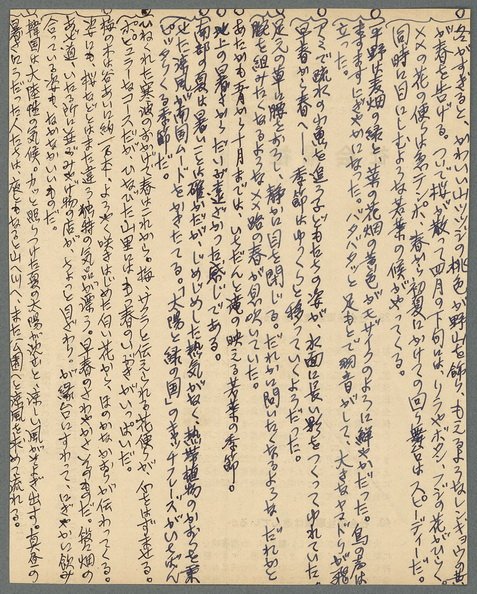 冬がすぎると、かわいい山ツツジの桃色が野山を飾り、もえるようなレンギョウの黄
が春を告げる。ついで桜が散って四月の下旬には、リラやボタン、フジの花がひらく。
の花の便りは急テンポ、春から初夏にかけての回り舞台はスピーディーだ。
同時に目にしむような若葉の候がやってくる。
平野は麦畑の緑と、菜の花畑の黄色がモザイクのように鮮やかだった。鳥の声は
ますますにぎやかになった。バタバタッと足もとで羽音がして、大きなヤマドリが飛
立った。
アミで疏水の小魚を追う子どもたちの姿が、水面に長い影をつくってゆれていた。
冬から春へ――季節はゆっくりと移っていくようだった。
足元の草に腰をおろし、静かに目を閉じる。だれかに問いたくなるような、だれかと
腕を組みたくなるような 路の春が息吹いていた。
地上の暑さからだいぶ遠ざかった感じである。
あたかも五月から十月までは、いちだんと滝の映える若葉の季節。
南部の夏は暑いことは確かだが、じめじめした熱気がなく、熱帯植物のかおりを乗
せた涼風が南国ムードをかきたてる。「太陽と緑の国」のキャッチフレーズがいちばん
ピッタリくる季節だ。
ひねくれた寒波のおかげで春はこれから。梅、サクラと伝えられる花便りが
ポピュラーなコースだが、ひなびた山里にはもう春のいぶきがいっぱいだ。
梅林は谷あいに約 ようやく咲きはじめた白い花から、ほのかなかおりが伝わってくる。
姿にも、桜などとはまた違う独特の気品が漂う。早春のさわやかさというものだ。
あぜ道、いたる所に並ぶみやげ物の店がちょっと目ざわりだが、縁台にすわって、にぎやかに飲み
合っている姿も、なかなかいいものだ。
韓国は大陸性の気候。カッと照りつけた夏の太陽が沈むと、涼しい風がそよぎ出す。真昼の
暑さにうだった人たちは、夜ともなると山へ川へ、また公園へと涼風を求めて流れる。